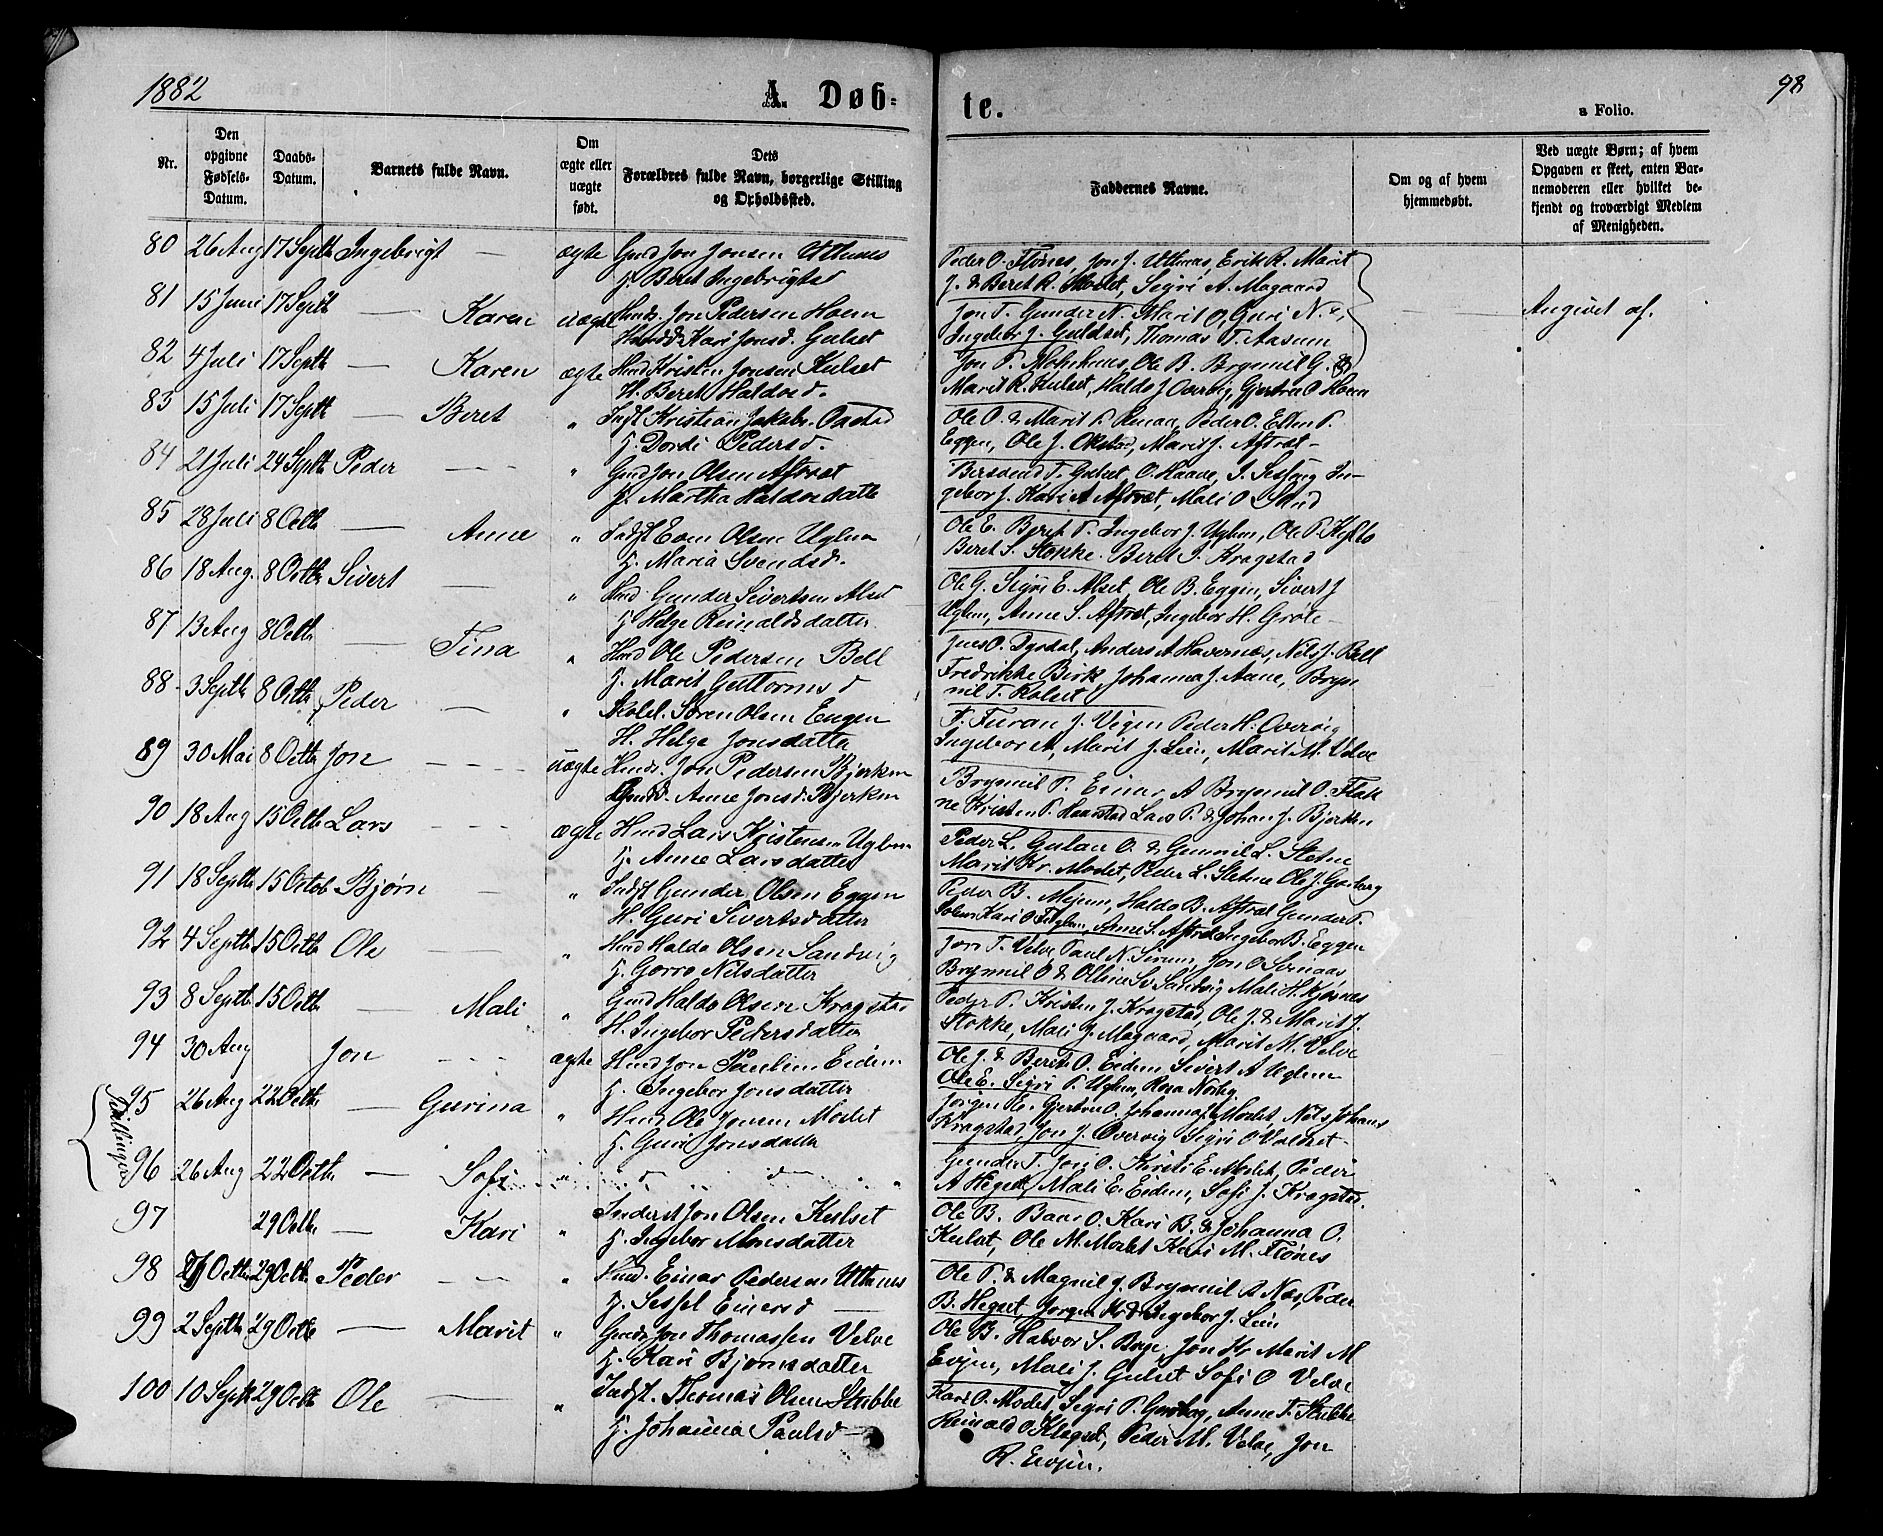 1882
A. Døb=
te.
98
a Folio.
Nr.
Den
opgivne
Fødsels-
Datum.
Daabs-
Datum.
Barnets fulde Navn.
Om
ægte eller
uægte
født.
Dets
Forældres fulde Navn, borgerlige Stilling
og Opholdssted.
Faddernes Navne.
Om og af hvem
hjemmedøbt.
Ved uægte Børn; af hvem
Opgaven er skeet, enten Bar-
nemoderen eller hvilket be-
kjendt og troværdigt Medlem
af Menigheden.
80 26 Aug 17 Septb Ingebrigt — ægte Gmd Jon Jonsen Uthnes
H. Beret Ingebrigtsd
Peder O. Flønes, Jon J. Uthnes, Erik R. Marit
J. & Beret R. Moslet, Sigri A. Mogaard
81 15 Juni 17 Septb — Karen uægte Jon Pedersen Hoem
Kari Jonsd. Gulset
Jon T. Gunder N. Marit O. Guri N.
Ingebor J. Guldset, Thomas T. Aasum
Angivet af.
82 4 Juli 17 Septb — Karen ægte Hmd Kristen Jonsen Kulset
H. Beret Haldosd.
Jon P. Ole B. Brynnil G. &
Marit R. Kulset, Haldo J Overvig, Gjertru O Hoem
83 15 Juli 17 Septb — Beret " Indst Kristian Jakobs.
H. Dordi Pedersd.
Ole O. & Marit P. Peder O. Ellen P.
Eggen, Ole J. Marit J. Aftret
84 21 Juli 24 Septb Peder — " Gmd Jon Olsen Aftret
H. Martha Haldosdatte
Bersvend T. Gulset, O. Haave, J. In-
gebor J. Kari A Aftret, Mali O Sand
85 28 Juli 8 Octb — Anne " Indst Olsen Uglem
H. Maria Svendsd.
Ole E. Beret T. Ingebor J. Uglem, Ole P.
Beret S. Stokke. Beret J. Kragstad
86 18 Aug. 8 Octb Sivert — " Hmd Gunder Sivertsen
H. Helge Reinaldsdatter
Ole G. Sigri E. Ole B. Eggen, Sivert J
Uglem, Anne S. Aftret, Ingebor H. Grøte
87 13 Aug 8 Octb — Tina " Hmd Ole Pedersen Bell
H. Marit Guttormsd
O. Dyrdal, Anders A Havernæs, Nils J. Bell
Fredrikke Birk, Johanna J. Aune, Bryn
nil T. Rolset
88 3 Septb 8 Octb Peder — " Skolel. Søren Olsen Eugen
H. Helge Jonsdatter
F. Furan J. Vigen Peder H. Overvig
Ingebor A, Marit J. Lien, Marit M. Velve
89 30 Mai 8 Octb Jon — uægte Jon Pedersen Bjerken
Anne Jonsd. Bjerken
Brynnil P. Einar A Brynnil O. Flak
ne Kristen P. Haarstad Lars P. & Johan J. Bjerken
90 18 Aug 15 Octb Lars — ægte Hmd Lars Kristensen Uglem
H. Anne Larsdatter
Peder L. O. & Gunnil L. Stetne
Marit Kr. Moslet, Peder L. Stetne Ole J. Garberg
91 18 Septb 15 Octob Bjørn — " Indst Gunder Olsen Eggen
H. Guri Sivertsdatter
Peder B. Haldo B. Aftret Gunder P.
Kari O. Uglem, Anne S. Aftret Ingebor B. Eggen
92 4 Septb 15 Octb Ole — " Hmd Haldo Olsen Sandvig
H. Gorro Nilsdatter
Jon T. Velve Paul N. Jon O
Brynnil O & Olline Sandvig Mali H. Kjøsnes
93 8 Septb 15 Octb — Mali " Gmd Haldo Olsen Kragstad
H. Ingebor Pedersdatter
Peder P. Kristen J. Kragstad, Ole J. & Marit J.
Stokke, Mali J. Mogaard, Marit M. Velve
94 30 Aug Jon — ægte Hmd Jon Paulsen Eidem
H. Ingebor Jonsdatter
Ole J. & Berit O. Eidem, Sivert A Uglem
Ole E. Sigri P. Uglem, Rosa Norbeg
Tvillinger
95 26 Aug 22 Octb. — Gurina " Hmd Ole Jonsen Moslet
H. Guri Jonsdatter
Jørgen E. Gjertru O. Johanna J. Moslet, Nils Johans
Kragstad, Jon J. Overvig Sigri O Valset
96 26 Aug 22 Octb. — Sofi " d d "
Gunder T. Jon O. Kirsti E. Moslet, Peder
A Hegset, Mali E. Eidem, Sofi J. Kragstad.
97 29 Octb. — Kari " Inderst Jon Olsen Kulset
H. Ingebor Monsdatter
Ole B. Baar O. Kari B. & Johanna O.
Kulset, Ole M. Moslet Kari M. Flønes
98 Octb 29 Octb Peder — " Hmd. Einar Pedersen Uthnes
H. Sessel Einersd —
Ole P. & Magnil J. Brynnil A Næs, Peder
B. Hegset, Jørgen Kr & Ingebor J. Lien
99 2 Septb 29 Octb — Marit " Gmd Jon Thomassen Velve
H. Kari Bjørnsdatter
Ole B. Halvor S. Berge, Jon Kr Marit M
Evjen, Mali J. Gulset Sofi O Velve
100 10 Septb 29 Octb Ole — " Indst. Thomas Olsen Stubbe
H. Johanna Paulsd —
Kari O. Moslet, Sigri P. Garberg, Anne T. Stubbe
Reinald O Peder M. Velve, Jon
R. Evjen.